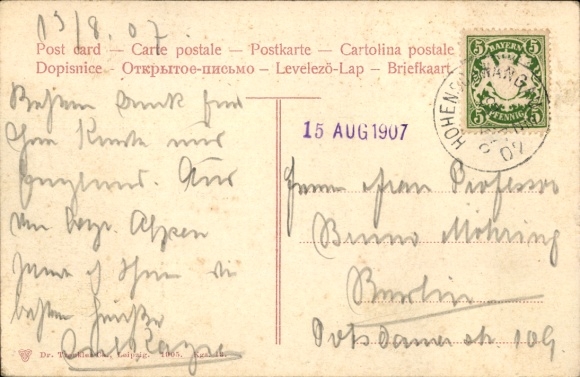 13/8. 07
Post card – Carte postale – Postkarte – Cartolina postale
Dopisnice – Открытое-письмо – Levelező-Lap – Briefkaart
5 BAYERN 5
5 PFENNIG 5
HOHENSCHWANGAU
07
15 AUG 1907
Besten Dank für
Ihre Karte aus
England. Aus
den bayr. Alpen
sende ich Ihnen die
besten Grüße
Herrn u. Frau Professor
Bruno Möhring
Berlin
Potsdamerstr. 109
Dr. Trenkler Co., Leipzig. 1905.